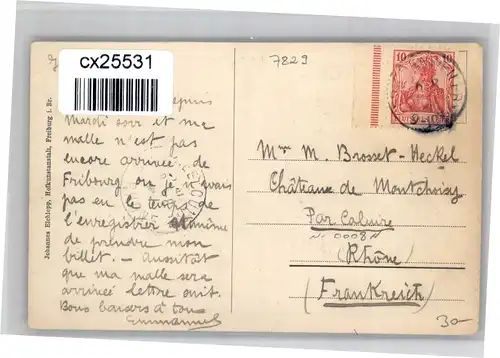 cx25531
7829
10
depuis
Mardi soir et ma
malle n'est pas
encore arrivée de
Fribourg où je n'avais
pas eu le temps de
l'enregistrer et même
de prendre mon
billet. - Aussitôt
que ma malle sera
arrivée lettre suit.
Bons baisers à tous
Emmanuel
Johannes Elchlepp, Hofkunstanstalt, Freiburg i. Br.
Mme M. Brosset-Heckel
Château de Montchoisy
Par Caluire
N. 0008 N
(Rhône)
(Frankreich)
30-